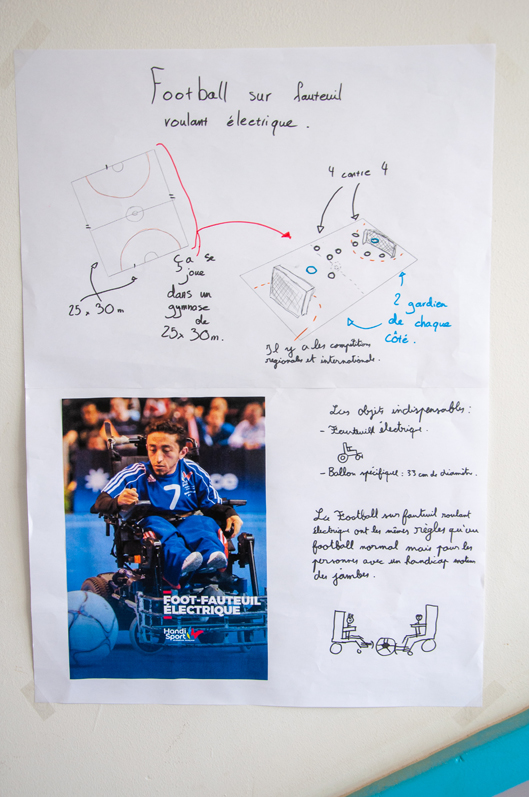 Football sur fauteuil
roulant électrique.
4 contre 4
ça se
joue
dans un
gymnase
de
25x 30m.
25x 30m
2 gardien
de chaque
côté.
Il y a les compétition
regionales et internationale.
Les objets indispensables:
- Fauteuil électrique.
- Ballon spécifique : 33 cm de diamètre.
Le Football sur fauteuil roulant
électrique ont les mêmes règles qu'au
football normal mais pour les
personnes avec un handicap moteur
de jambes.
7
FOOT-FAUTEUIL
ÉLECTRIQUE
Handi
Sport